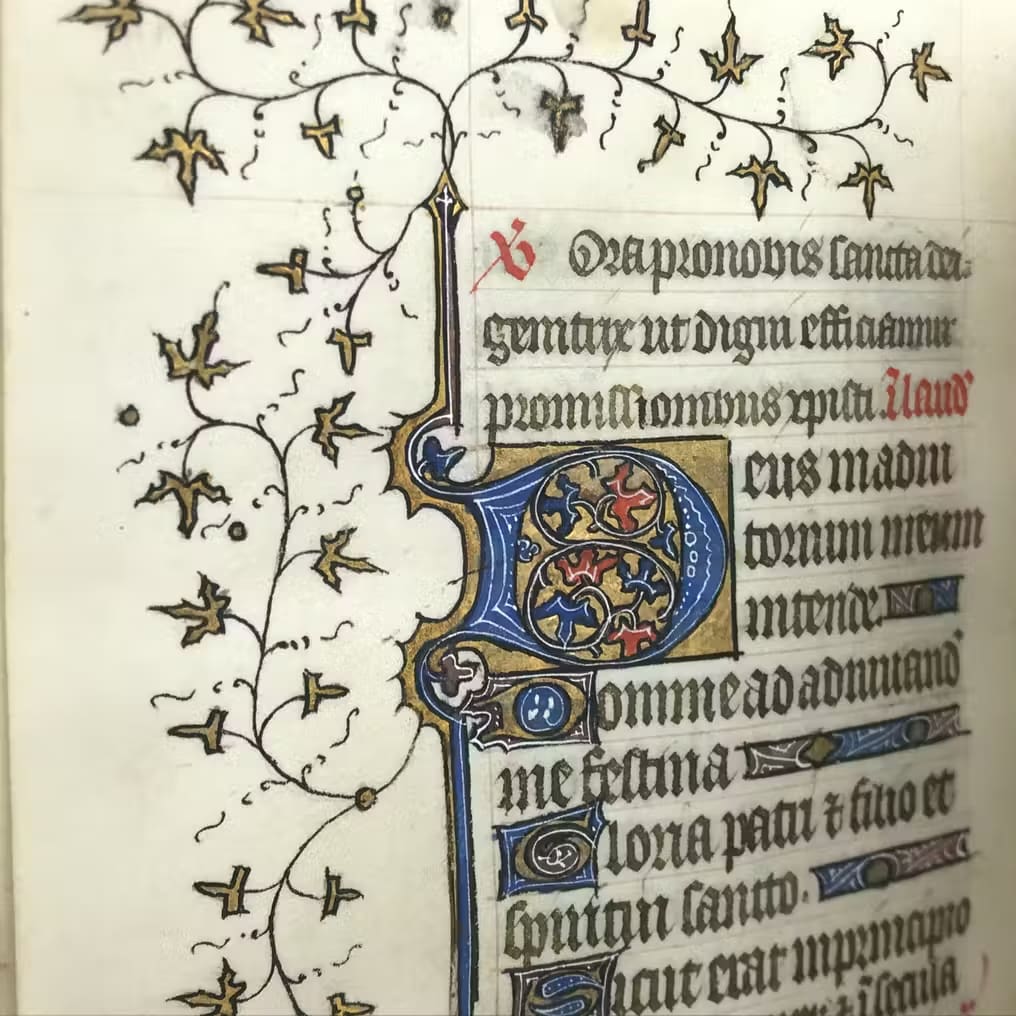 ℣ Ora pro nobis sancta dei
genitrix ut digni efficiamur
promissionibus xpisti. In laud'
Deus in adiu
torium meum
intende.
Domine ad adiuuand'
me festina
Gloria patri ⁊ filio et
spiritui sancto.
Sicut erat in principio
⁊ i secula